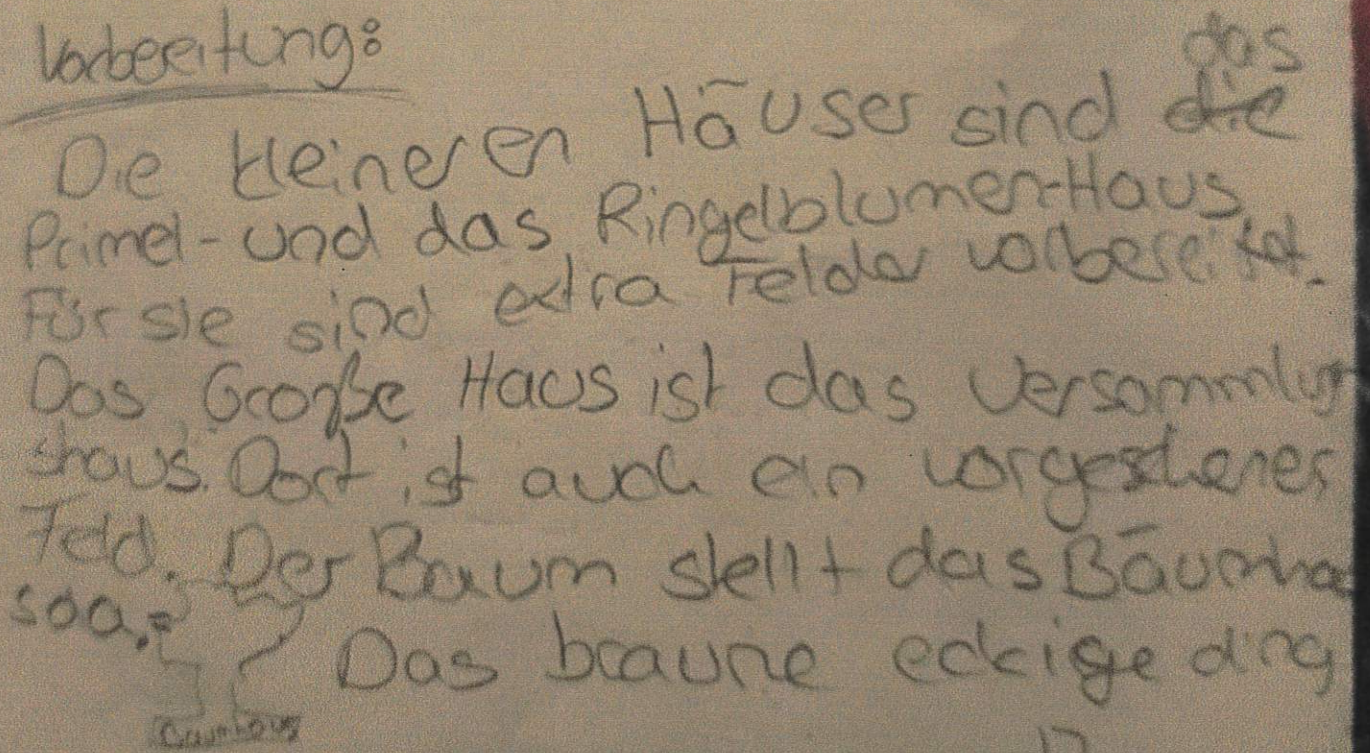 Vorbereitung:
das
Die kleineren Häuser sind die
Primel-und das Ringelblumen-Haus.
Für sie sind extra Felder vorbereitet.
Das Große Haus ist das Versammlun
shaus. Dort ist auch ein vorgesehenes
Feld. Der Baum stellt das Baumha
Das braune eckige ding
Baumhaus